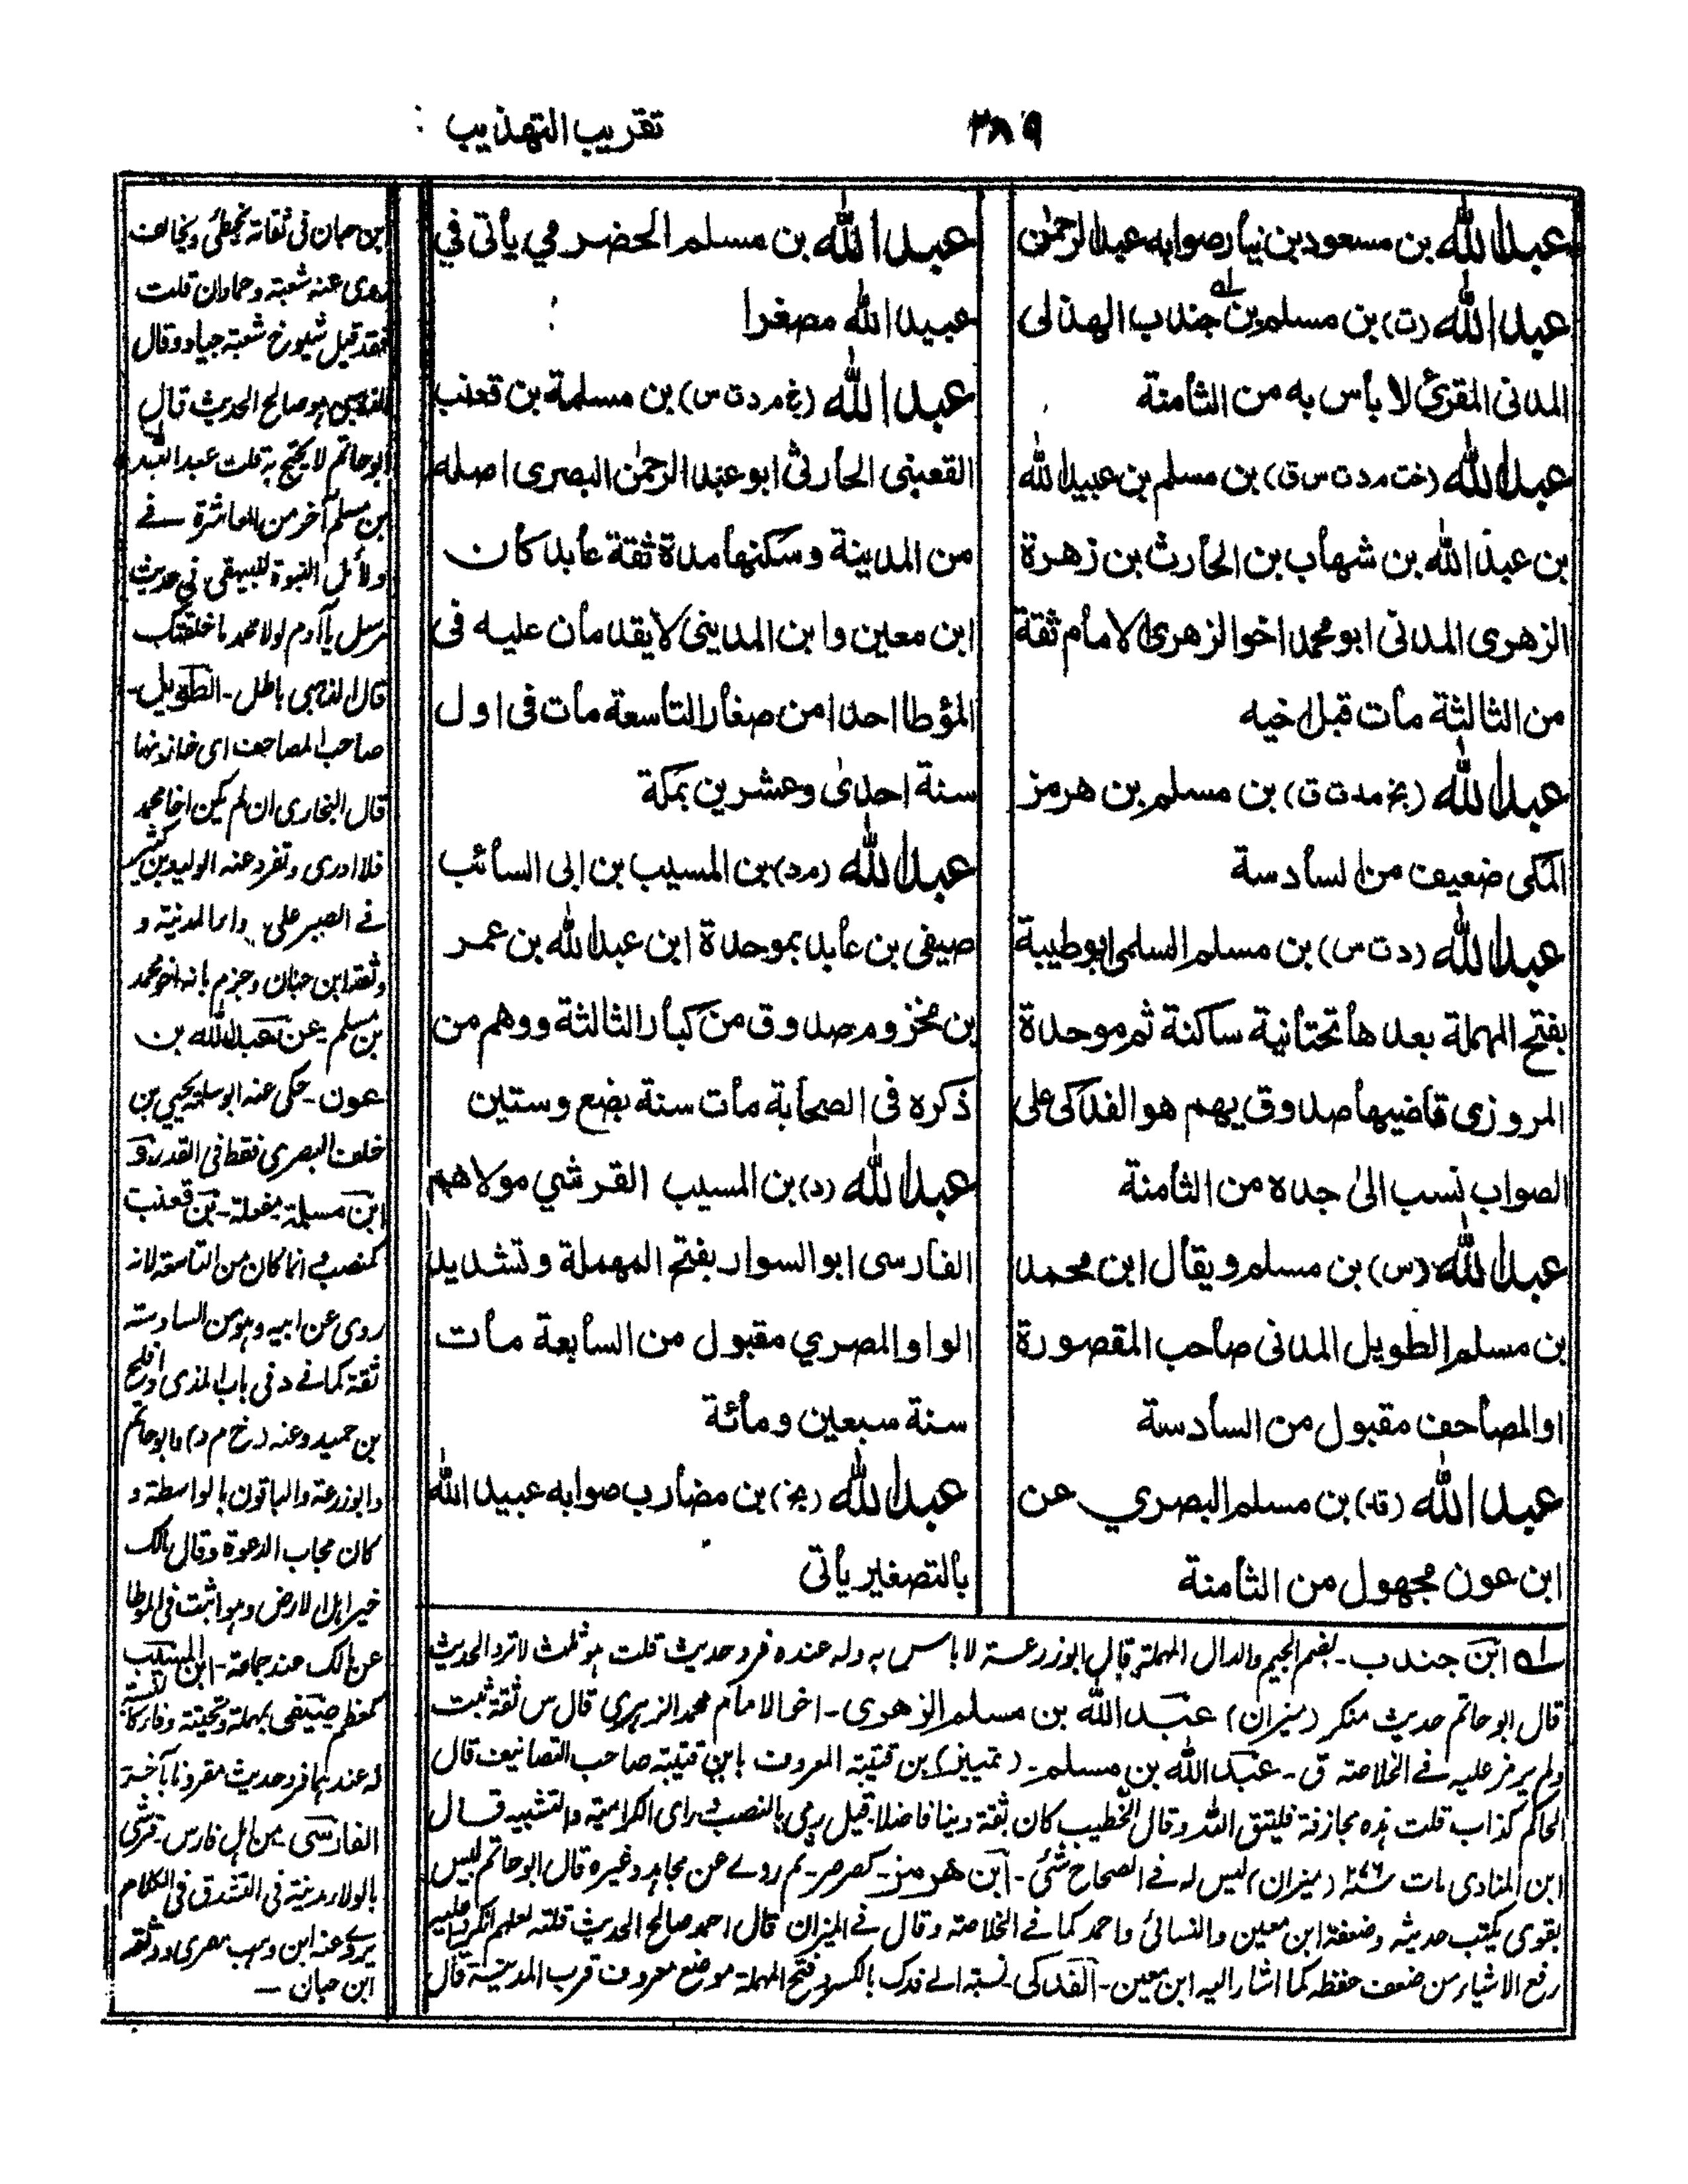 تقريب التهذيب
٣٨٩
عبد الله بن مسعود بن نيار صوابه عبد الرحمٰن
عبد الله (ت) بن مسلم بن جندب الهذلى
المدنى المقرئ لا بأس به من الثامنة
عبد الله (خت م د ت س ق) بن مسلم بن عبيد الله
بن عبد الله بن شهاب بن الحارث بن زهرة
الزهرى المدنى ابو محمد اخو الزهرى الامام ثقة
من الثالثة مات قبل اخيه
عبد الله (بخ مد ت ق) بن مسلم بن هرمز
المكى ضعيف من السادسة
عبد الله (د ت س) بن مسلم السلمى ابو طيبة
بفتح المهملة بعدها تحتانية ساكنة ثم موحدة
المروزى قاضيها صدوق يهم هو الفدكى على
الصواب نسب الىٰ جده من الثامنة
عبد الله (س) بن مسلم ويقال ابن محمد
بن مسلم الطويل المدنى صاحب المقصورة
او المصاحف مقبول من السادسة
عبد الله (قد) بن مسلم البصري عن
ابن عون مجهول من الثامنة
عبد الله بن مسلم الحضرمي يأتى في
عبيد الله مصغرا
عبد الله (خ م د ت س) بن مسلمة بن قعنب
القعنبى الحارثى ابو عبد الرحمٰن البصرى اصله
من المدينة وسكنها مدة ثقة عابد كان
ابن معين وابن المدينى لا يقدمان عليه فى
المؤطا احدا من صغار التاسعة مات فى اول
سنة احدىٰ وعشرين بمكة
عبد الله (م د) بن المسيب بن ابى السائب
صيفى بن عابد بموحدة ابن عبد الله بن عمر
بن مخزوم صدوق من كبار الثالثة ووهم من
ذكره فى الصحابة مات سنة بضع وستين
عبد الله (د) بن المسيب القرشي مولاهم
الفارسى ابو السوار بفتح المهملة وتشديد
الواو المصري مقبول من السابعة مات
سنة سبعين ومائة
عبد الله (بخ) بن مضارب صوابه عبيد الله
بالتصغير يأتى
له ابن جندب - بضم الجيم والدال المهملة قال ابو زرعة لا باس به وله عنده فرد حديث قلت هو ثلث لا ترد الحديث
قال ابو حاتم حديث منكر (ميزان) عبد الله بن مسلم الزهرى - اخو الامام محمد الزهري قال س ثقة ثبت
ولم يرمز عليه فے الخلاصة ق - عبد الله بن مسلم - (تمييز) بن قتيبة المعروف بابن قتيبة صاحب التصانيف قال
الحاكم كذاب قلت هذه مجازفة فليتق الله وقال الخطيب كان ثقة دينا فاضلا قيل رمي بالنصب وراى الكرامية والتشبيه قال
ابن المنادى مات ٢٧٦ (ميزان) ليس له فے الصحاح شئ - ابن هرمز - كصرصر - لم روے عن مجاهد وغيره قال ابو حاتم ليس
بقوى يكتب حديثه وضعفه ابن معين والنسائى واحمد كما فے الخلاصة وقال فے الميزان قال احمد صالح الحديث قلته لعلهم انكروا عليه
رفع الاشياء من ضعف حفظه كما اشار اليه ابن معين - الفدكى نسبة الے فدك بالكسر وفتح المهملة موضع معروف قرب المدينة قال
ابن حبان فى ثقاته يخطئ ويخالف
روى عنه شعبة وحمادان قلت
فقد قيل شيوخ شعبة جياد وقال
الذهبى هو صالح الحديث قال
ابو حاتم لا يحتج به قلت عبد الله
بن مسلم آخر من العاشرة فے
دلائل النبوة للبيهقى فى حديث
مرسل يا آدم لولا محمد ما خلقتك
قال الذهبى باطل - الطويل -
صاحب المصاحف اى خازنها
قال البخارى ان لم يكن اخا محمد
فلا ادرى وتفرد عنه الوليد بن كثير
فے الصبر على لاوا المدينة و
وثقه ابن حبان وجزم بانه اخو محمد
بن مسلم عن عبد الله بن
عون - حكى عنه ابو سلمة يحيى بن
خلف البصرى فقط فى القدر و
ابن مسلمة بفعلة - بن قعنب
كمنصب انما كان من التاسعة لانه
روى عن ابيه وهو من السادسة
ثقة كما فے د فى باب المذى افلح
بن حميد وعنه (خ م د) وابو حاتم
وابو زرعة والباقون بالواسطة و
كان مجاب الدعوة وقال مالك
خير اهل الارض وهو اثبت فى المؤطا
عن مالك عند جماعة - ابن المسيب
كمعظم صيفى بمهملة وتحتية وفاء
له عندهما فرد حديث مقرونا بآخر
الفارسى من اهل فارس - قرشى
بالولاء
يروے عنه ابن وهب مصرى ووثقه
ابن حبان —